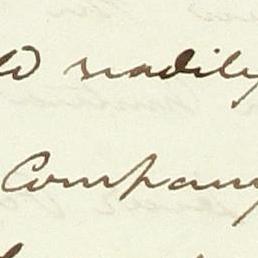 readily
Company